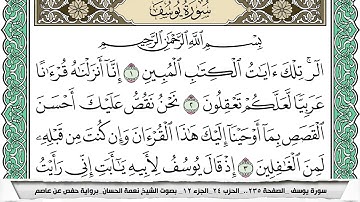 سُورَةُ يُوسُفَ
بِسْمِ ٱللَّهِ ٱلرَّحْمَٰنِ ٱلرَّحِيمِ
الٓر ۚ تِلْكَ ءَايَٰتُ ٱلْكِتَٰبِ ٱلْمُبِينِ ١ إِنَّآ أَنزَلْنَٰهُ قُرْءَٰنًا
عَرَبِيًّا لَّعَلَّكُمْ تَعْقِلُونَ ٢ نَحْنُ نَقُصُّ عَلَيْكَ أَحْسَنَ
ٱلْقَصَصِ بِمَآ أَوْحَيْنَآ إِلَيْكَ هَٰذَا ٱلْقُرْءَانَ وَإِن كُنتَ مِن قَبْلِهِۦ
لَمِنَ ٱلْغَٰفِلِينَ ٣ إِذْ قَالَ يُوسُفُ لِأَبِيهِ يَٰٓأَبَتِ إِنِّى رَأَيْتُ
سورة يوسف _الصفحة ٢٣٥_. الحزب ٢٤ _الجزء ١٢ _ بصوت الشيخ نعمة الحسان _برواية حفص عن عاصم